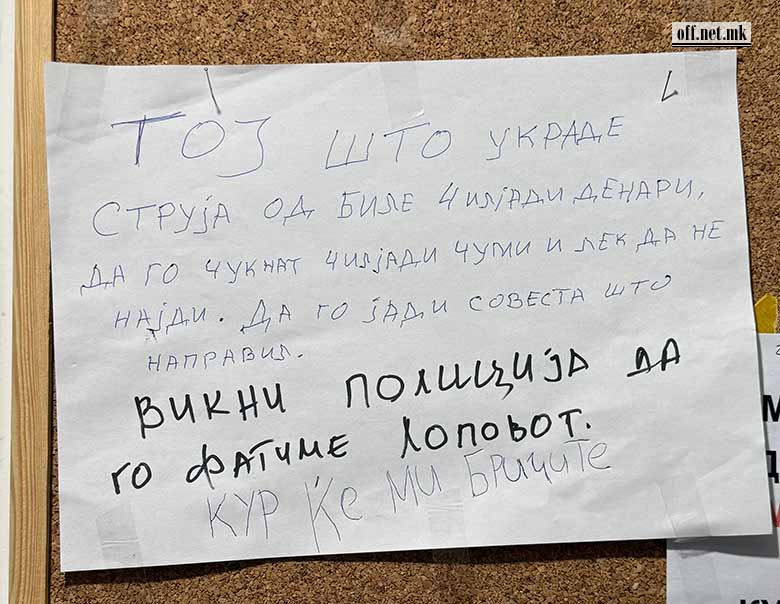 off.net.mk
ТОЈ ШТО УКРАДЕ
СТРУЈА ОД БИЛЕ ЧИЛЈАДИ ДЕНАРИ,
ДА ГО ЧУКНАТ ЧИЛЈАДИ ЧУМИ И ЛЕК ДА НЕ
НАЈДИ. ДА ГО ЈАДИ СОВЕСТА ШТО
НАПРАВИЛ.
ВИКНИ ПОЛИЦИЈА ДА
ГО ФАТИМЕ ЛОПОВОТ.
КУР ЌЕ МИ БРИЧИТЕ